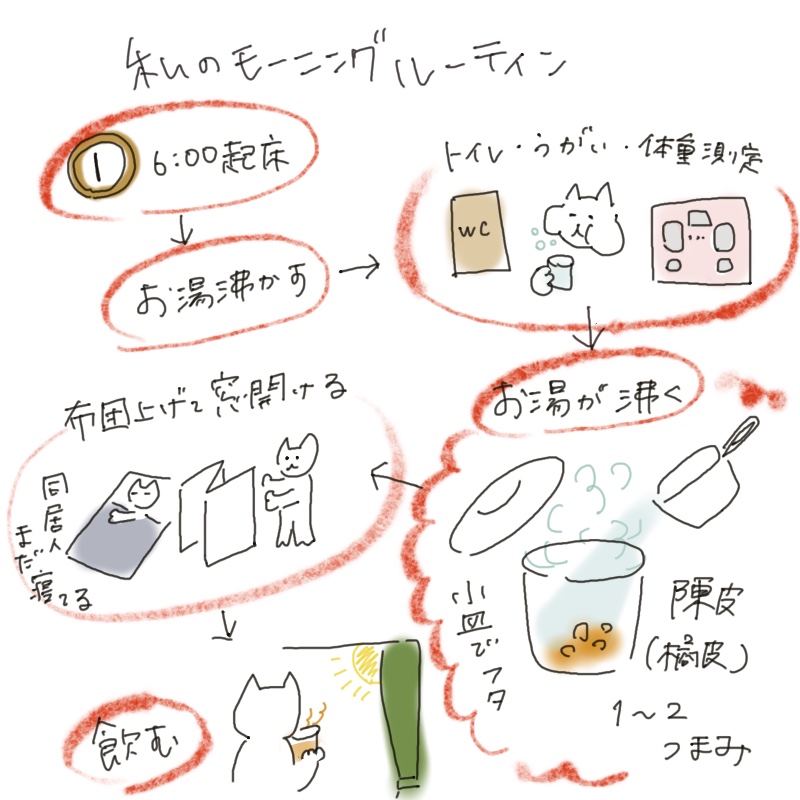 私のモーニングルーティン
1
6:00起床
お湯沸かす
トイレ・うがい・体重測定
WC
お湯が沸く
小皿でフタ
陳皮
(橘皮)
1〜2
つまみ
布団上げて窓開ける
同居人
まだ寝てる
飲む